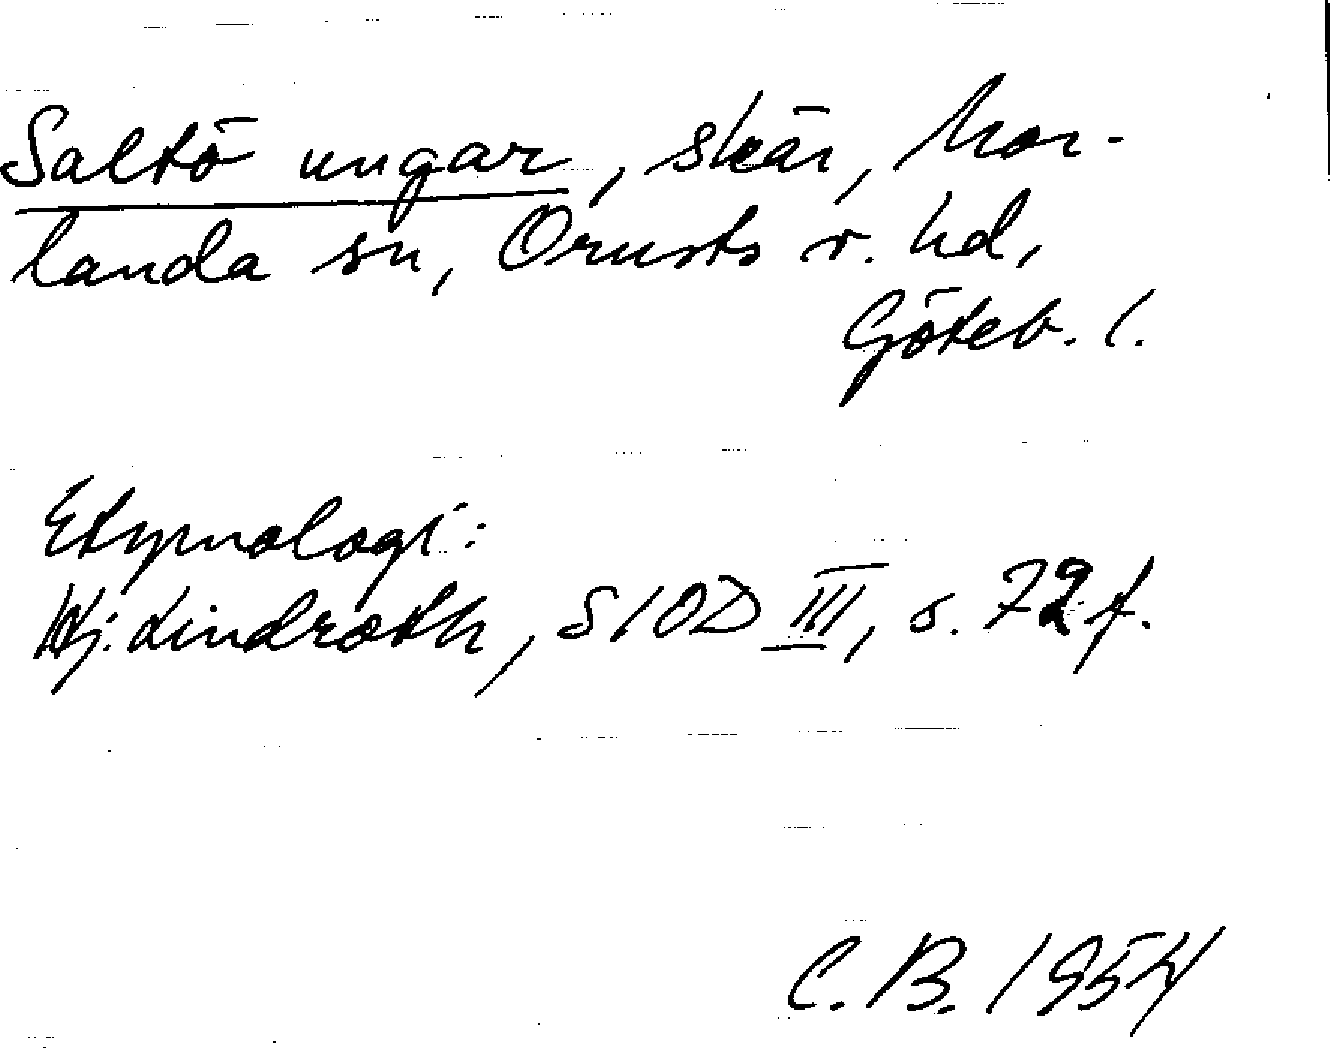 Saltö ungar, skär, Mor-
landa sn, Orusts v. hd,
Göteb. l.
Etymologi:
Hj. Lindroth, SIOD III, s. 72 f.
C. B. 1954